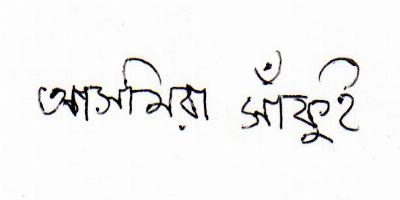 আসমিরা সাঁফুই